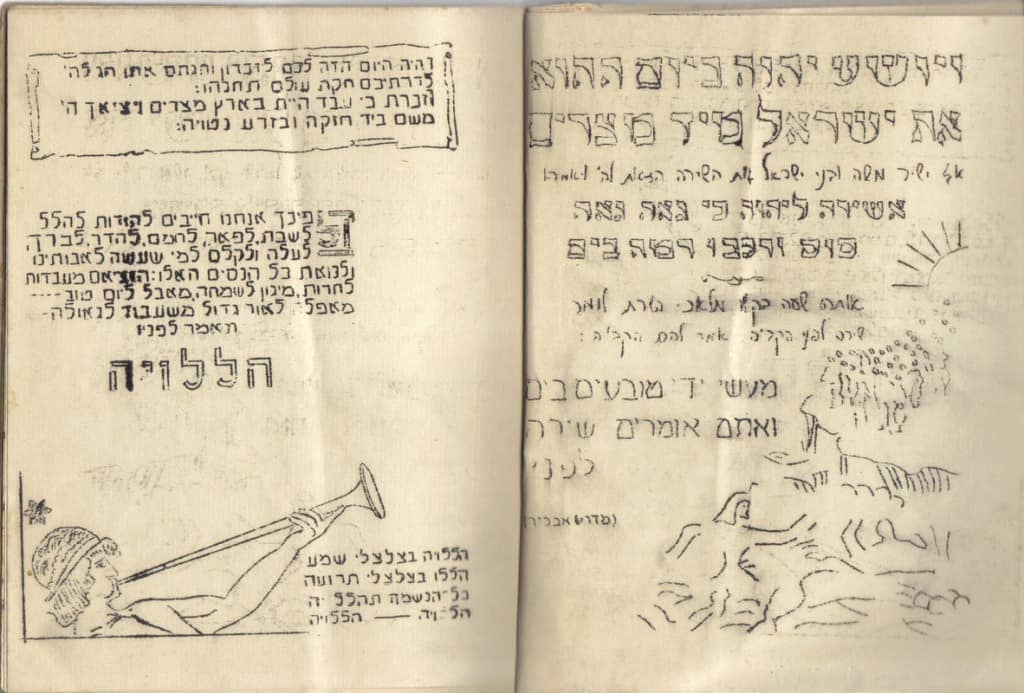 ויושע יהוה ביום ההוא
את ישראל מיד מצרים
אז ישיר משה ובני ישראל את השירה הזאת לה' ויאמרו
אשירה ליהוה כי גאה גאה
סוס ורכבו רמה בים
אותה שעה בקשו מלאכי השרת לומר
שירה לפני הקב"ה אמר להם הקב"ה:
מעשי ידי טובעים בים
ואתם אומרים שירה
לפני
(מדרש אבכיר)
והיה היום הזה לכם לזכרון וחגתם אתו חג לה'
לדרתיכם חקת עולם תחגהו:
וזכרת כי עבד היית בארץ מצרים ויציאך ה'
משם ביד חזקה ובזרע נטויה:
לפיכך אנחנו חייבים להודות להלל
לשבח, לפאר, לרומם, להדר, לברך,
לעלה ולקלס למי שעשה לאבותינו
ולנו את כל הנסים האלו: הוציאם מעבדות
לחרות, מיגון לשמחה, מאבל ליום טוב----
מאפלה לאור גדול משעבוד לגאולה-
ונאמר לפניו
הללויה
הללויה בצלצלי שמע
הללו בצלצלי תרועה
כל-הנשמה תהלל יה
הללויה. — הללויה